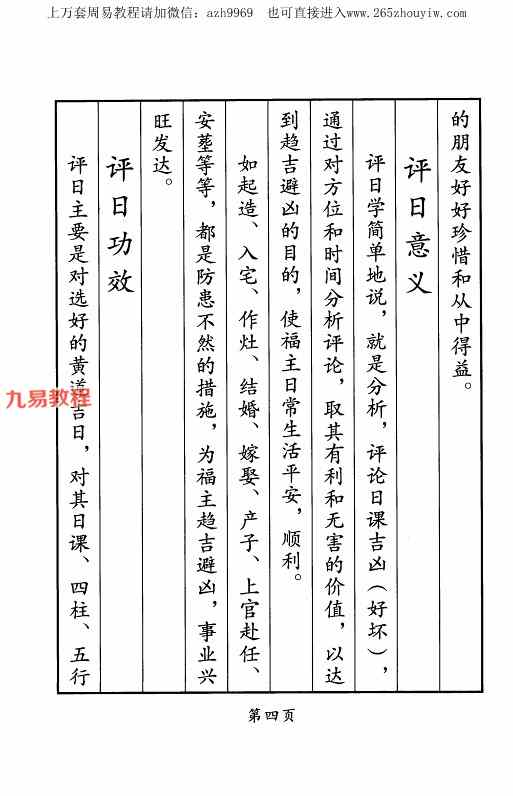 上万套周易教程请加微信：azh9969 也可直接进入www.265zhouyiw.com
的朋友好好珍惜和从中得益。
评日意义
评日学简单地说，就是分析，评论日课吉凶（好坏），
通过对方位和时间分析评论，取其有利和无害的价值，以达
到趋吉避凶的目的，使福主日常生活平安，顺利。
如起造、入宅、作灶、结婚、嫁娶、产子、上官赴任、
安葬等等，都是防患不然的措施，为福主趋吉避凶，事业兴
旺发达。
评日功效
评日主要是对选好的黄道吉日，对其日课、四柱、五行
九易教程
第四页